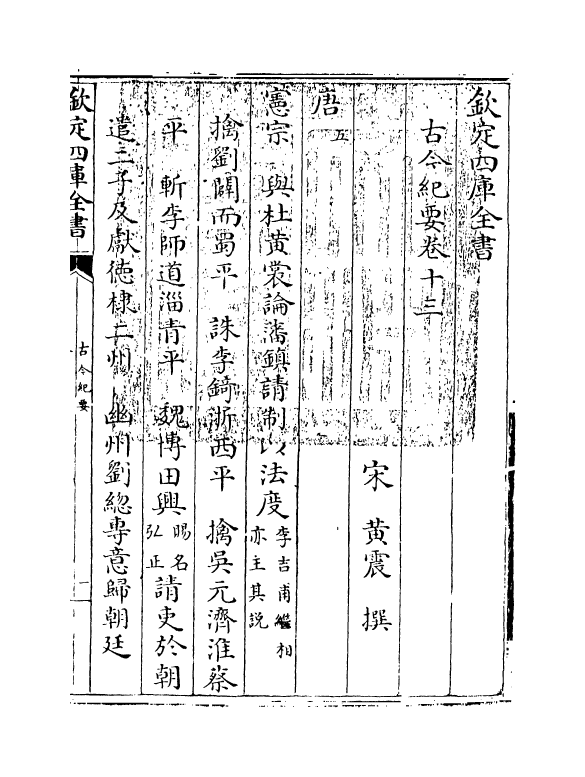 欽定四庫全書
古今紀要卷十三
宋 黃震 撰
唐五
憲宗 與杜黃裳論藩鎮請制以法度李吉甫繼相亦主其説
擒劉闢而蜀平 誅李錡浙西平 擒吳元濟淮蔡
平 斬李師道淄青平 魏博田興賜名弘正請吏於朝
遣三子及獻徳棣二州 幽州劉總専意歸朝廷
欽定四庫全書
古今紀要
一